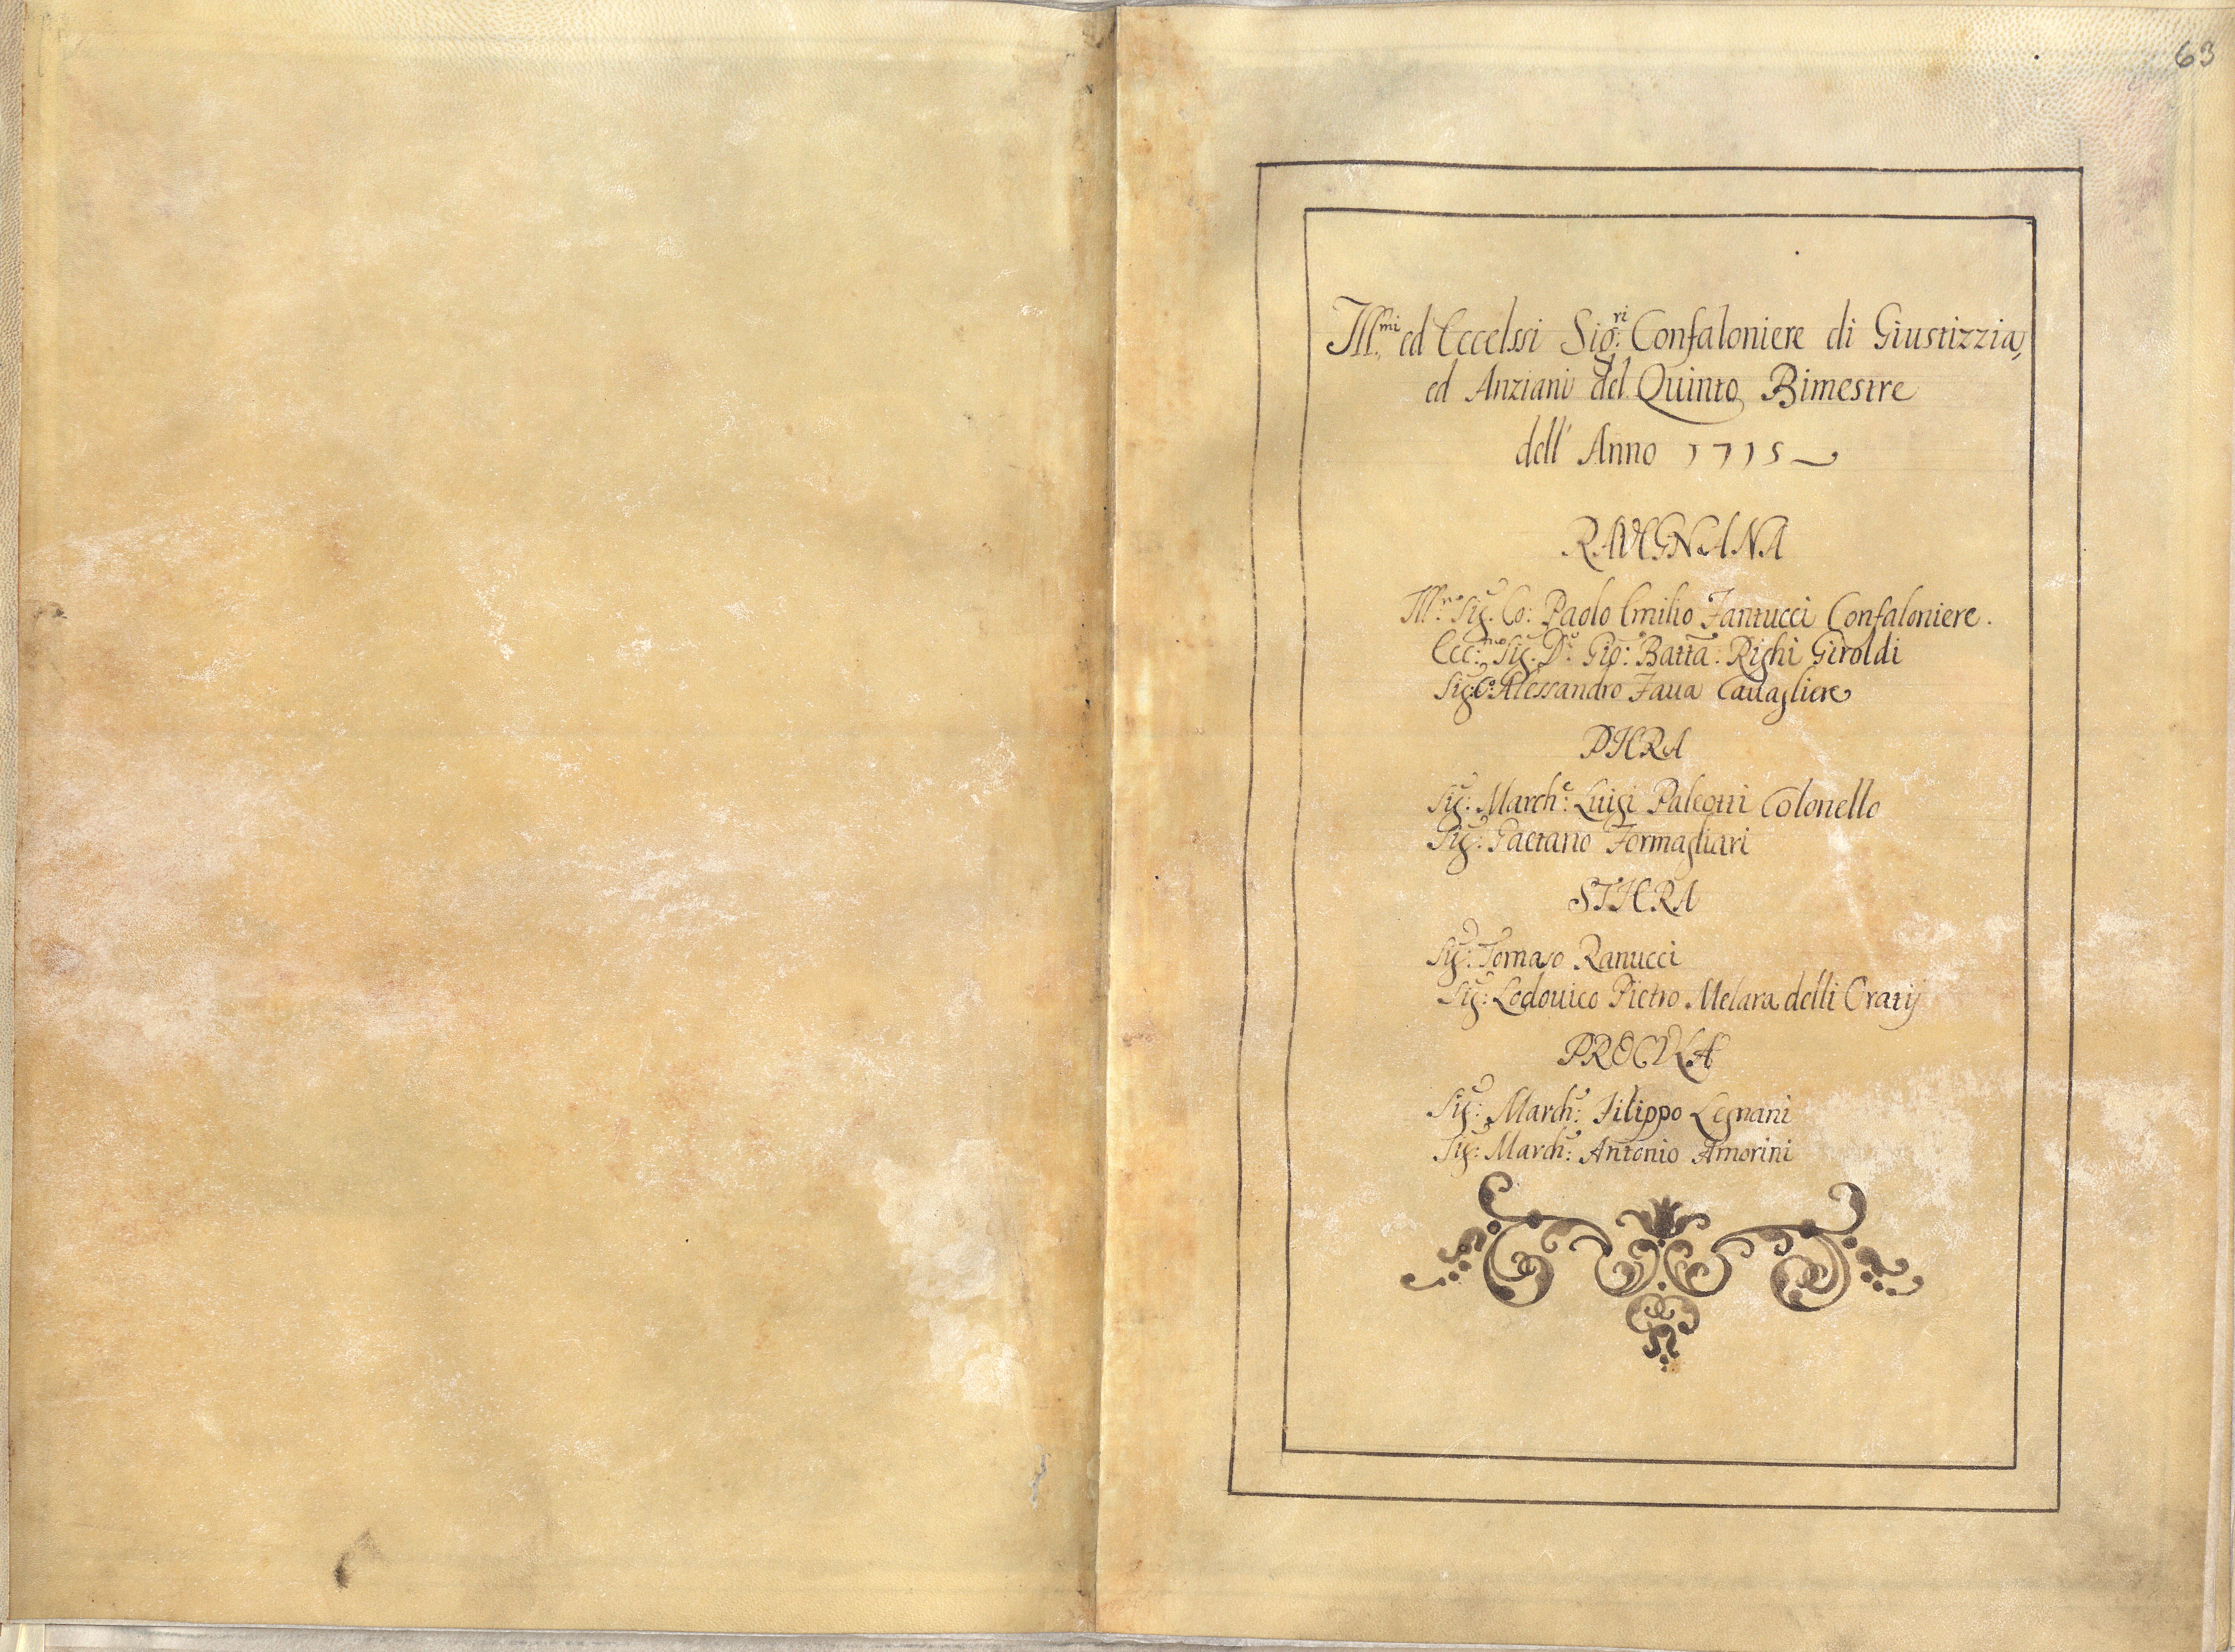 63
Ill.mi ed Eccelssi Sig.ri Confaloniere di Giustizzia,
ed Anziani del Quinto Bimestre
dell' Anno 1715
RAVEGNANA
Ill.mo Sig. Co: Paolo Emilio Fantucci Confaloniere.
Ecc:mo Sig. Dr. Gio: Batta: Righi Giroldi
Sig: Co: Alessandro Faua Cauagliere
PIERA
Sig: March:e Luigi Paleotti Colonello
Sig: Gaetano Formagliari
STIERA
Sig: Tomaso Ranucci
Sig: Lodouico Pietro Melara delli Oratij
PROCVLA
Sig: March: Filippo Legnani
Sig: March: Antonio Amorini